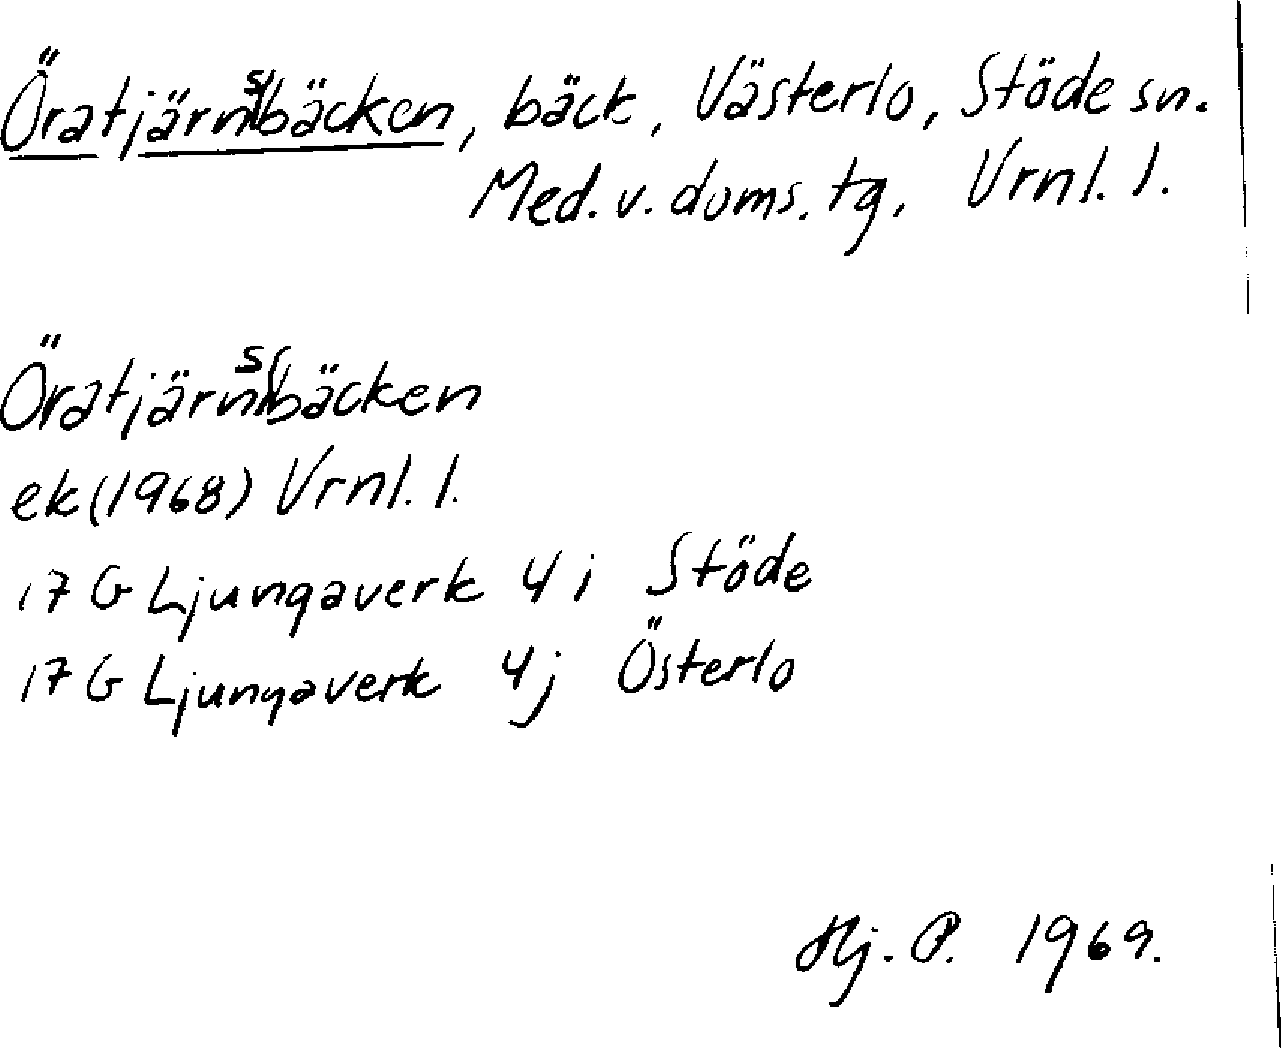 Öratjärnsbäcken, bäck, Västerlo, Stöde sn.
Med. v. doms. tg, Vrnl. l.
Öratjärnsbäcken
ek (1968) Vrnl. l.
17 G Ljungaverk 4 i Stöde
17 G Ljungaverk 4 j Österlo
Hj. P. 1969.